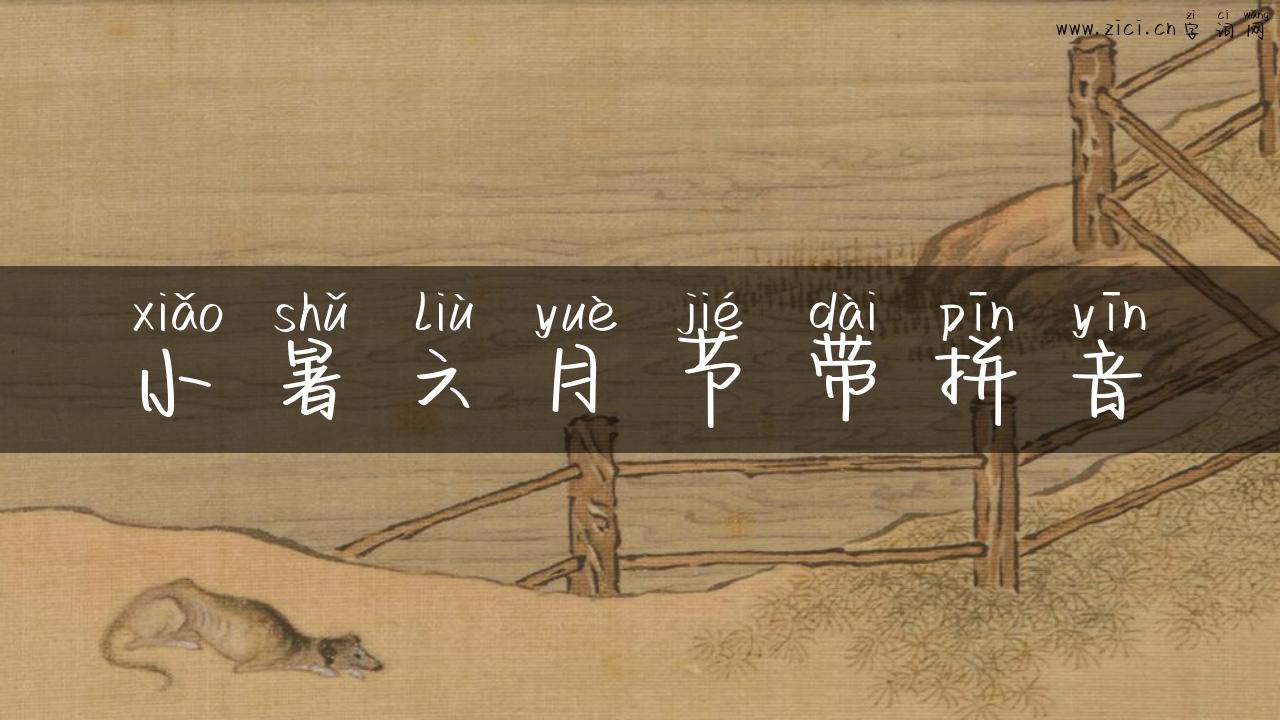 zì cí wǎng
www.zici.cn 字词网
xiǎo shǔ liù yuè jié dài pīn yīn
小暑六月节带拼音